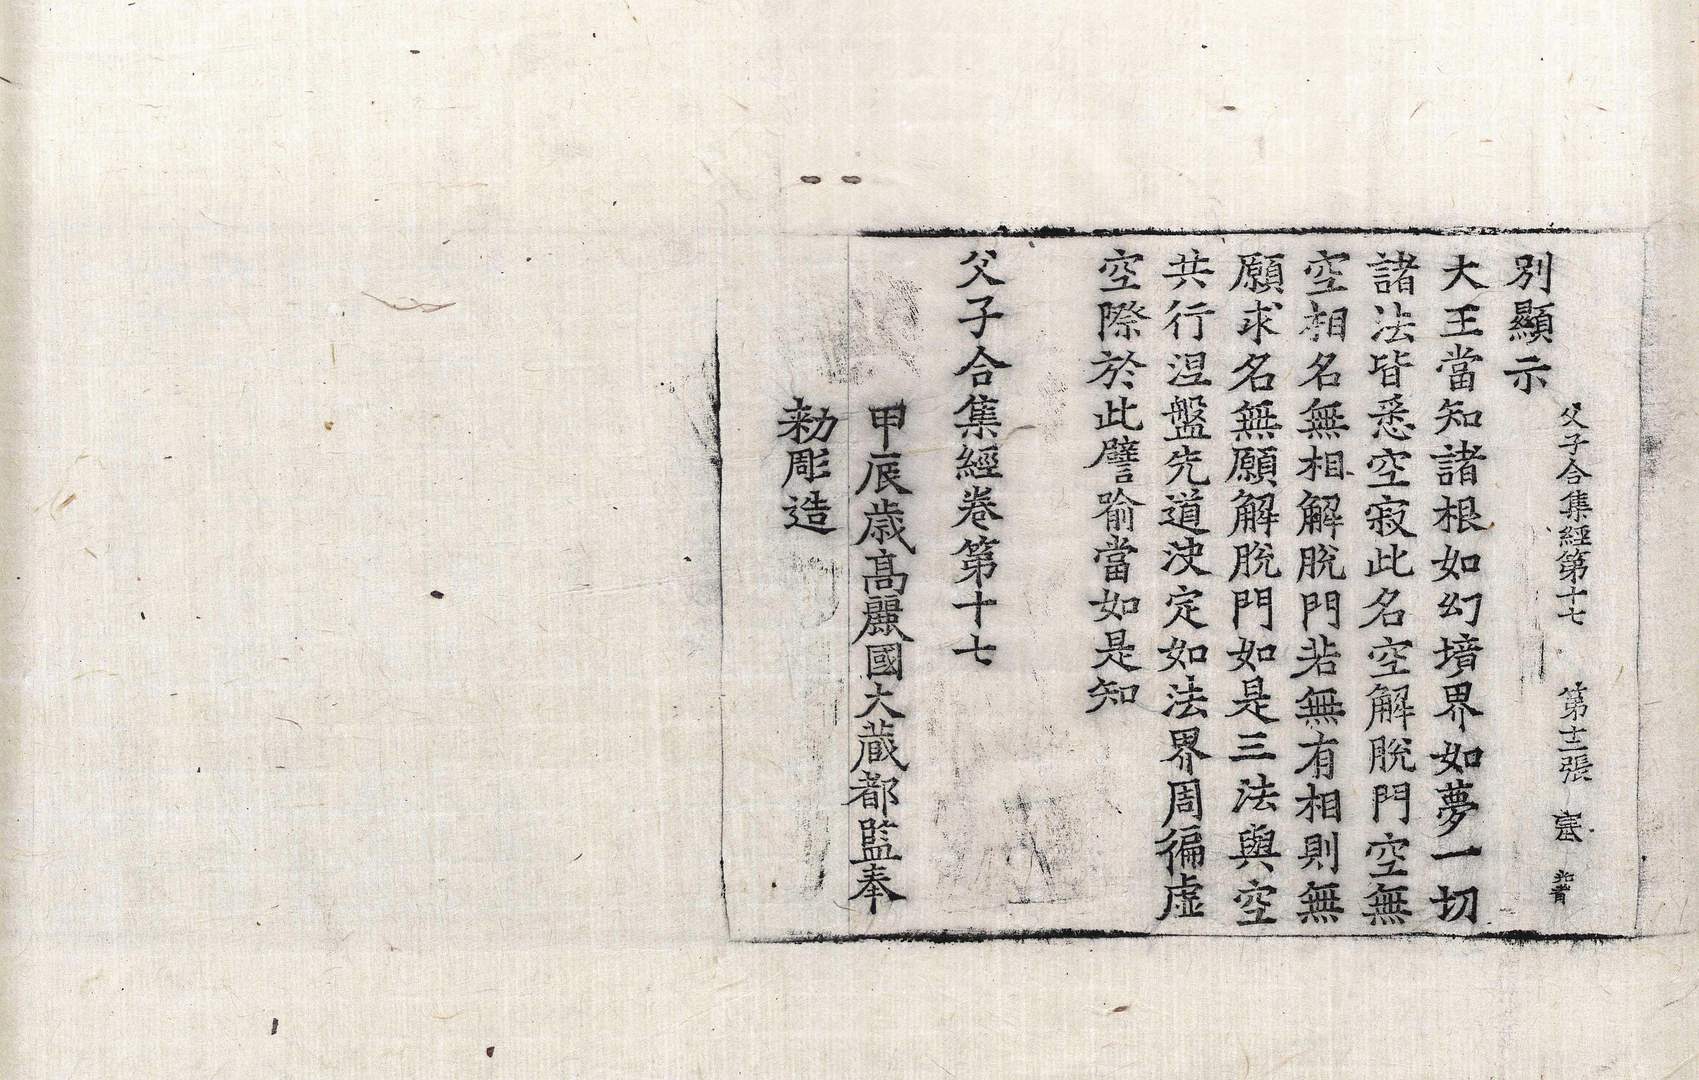 父子合集經第十七 第十二張 塞
別顯示
大王當知諸根如幻境界如夢一切
諸法皆悉空寂此名空解脫門空無
空相名無相解脫門若無有相則無
願求名無願解脫門如是三法與空
共行涅盤先道決定如法界周徧虛
空際於此譬喻當如是知
父子合集經卷第十七
甲辰歳高麗國大藏都監奉
勑彫造